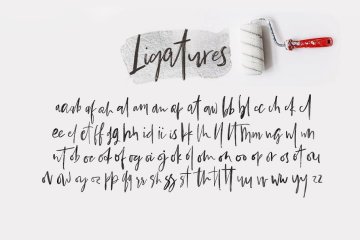 Ligatures
aa ab af ah al am aw ap at aw bb bl cc ch ck cl
ec el et ff gg hh id ii is kk lh ll lt mm ng nl nn
nt ob oc od of og oi oj ok ol om on oo op or os ot ou
ov ow oy oz pp qq rr sh ss st th tl tt uu vv ww yy zz